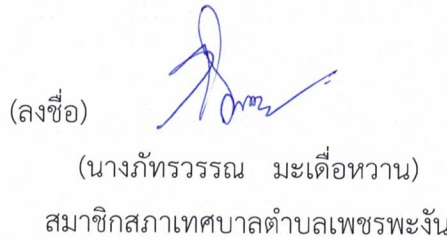 (ลงชื่อ)
(นางภัทรวรรณ มะเดื่อหวาน)
สมาชิกสภาเทศบาลตำบลเพชรพะงัน